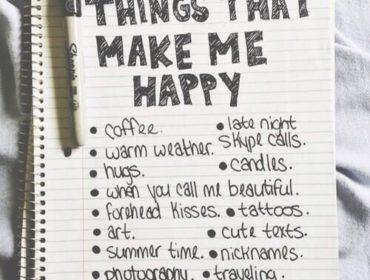 THINGS THAT
MAKE ME
HAPPY
• coffee. • late night
skype calls.
• warm weather.
• hugs. • candles.
• when you call me beautiful.
• forehead kisses. • tattoos.
• art. • cute texts.
• summer time. • nicknames.
• photography. • traveling.
Sharpie